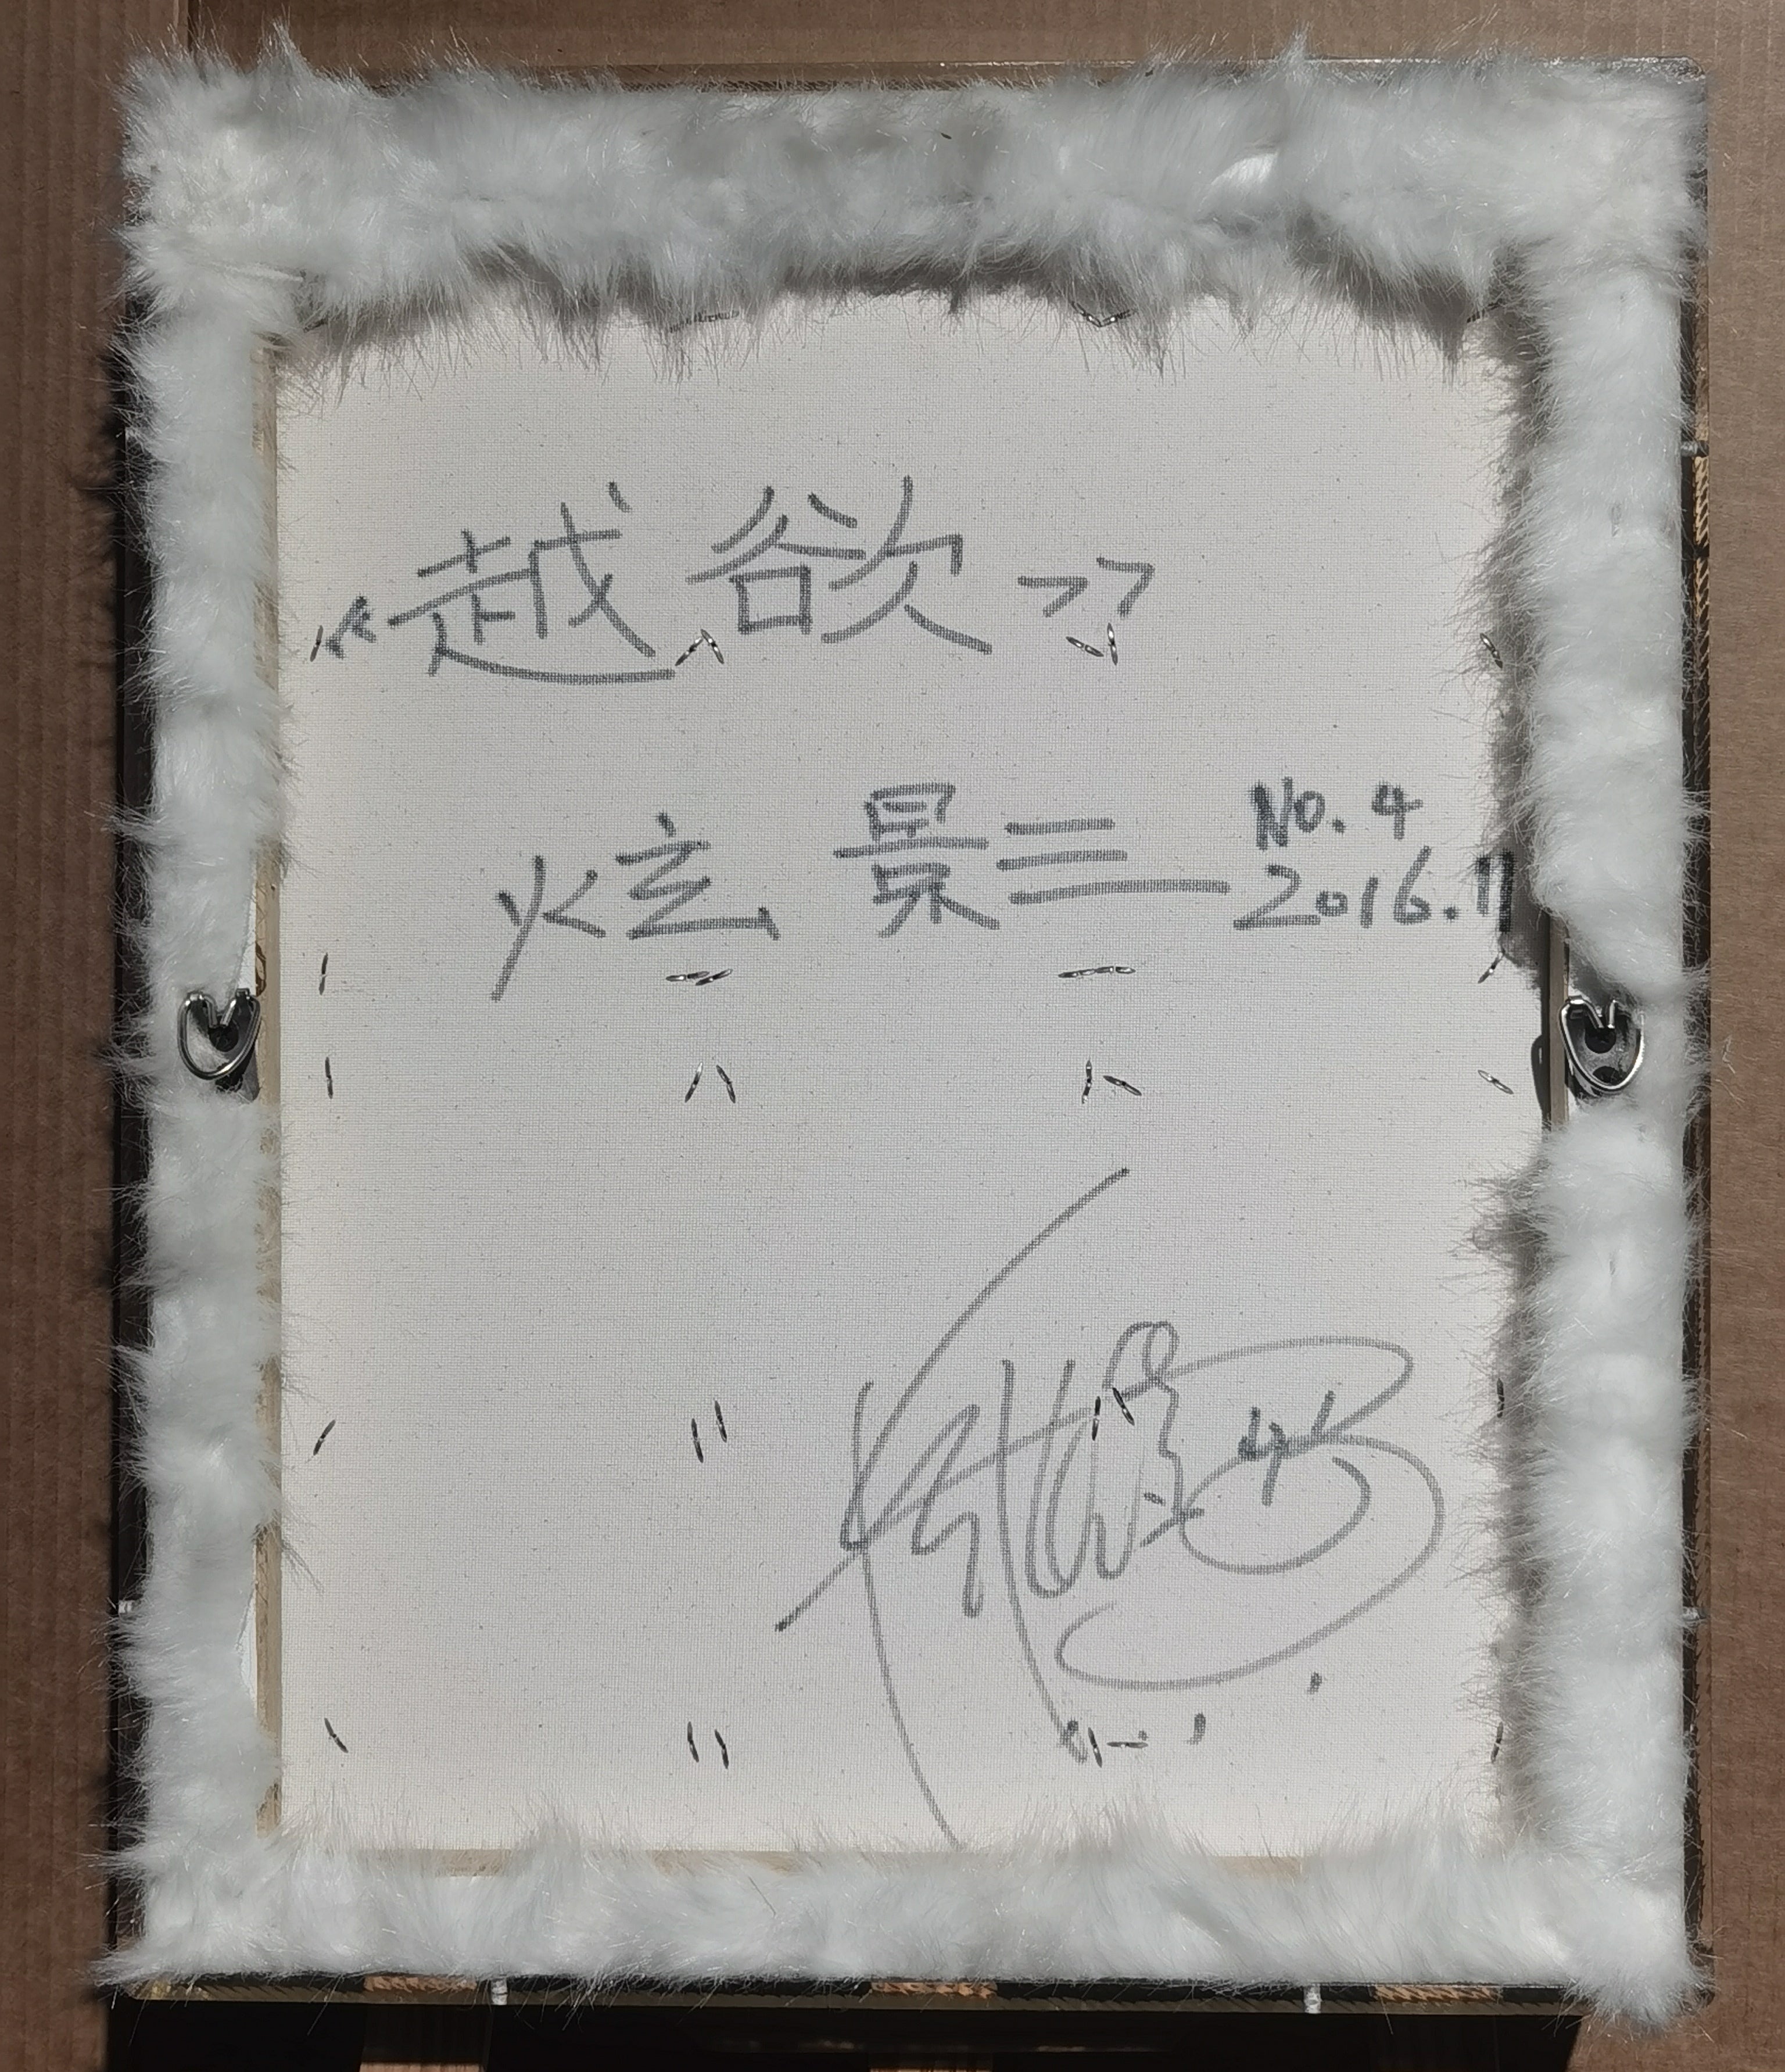 《越欲》
炫 景三 No. 4
2016.11